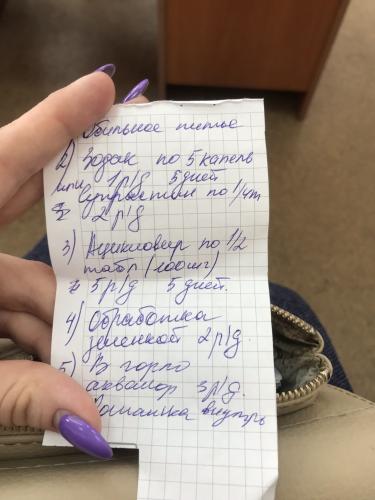 Обильное питье
2) Зодак по 5 капель
или 1 р/д 5 дней
Супрастин по 1/4 т
2 р/д
3) Ацикловир по 1/2
табл (100 мг)
5 р/д 5 дней.
4) Обработка
зеленкой 2 р/д.
5) В горло
аквалор 3 р/д.
Ромашка внутрь